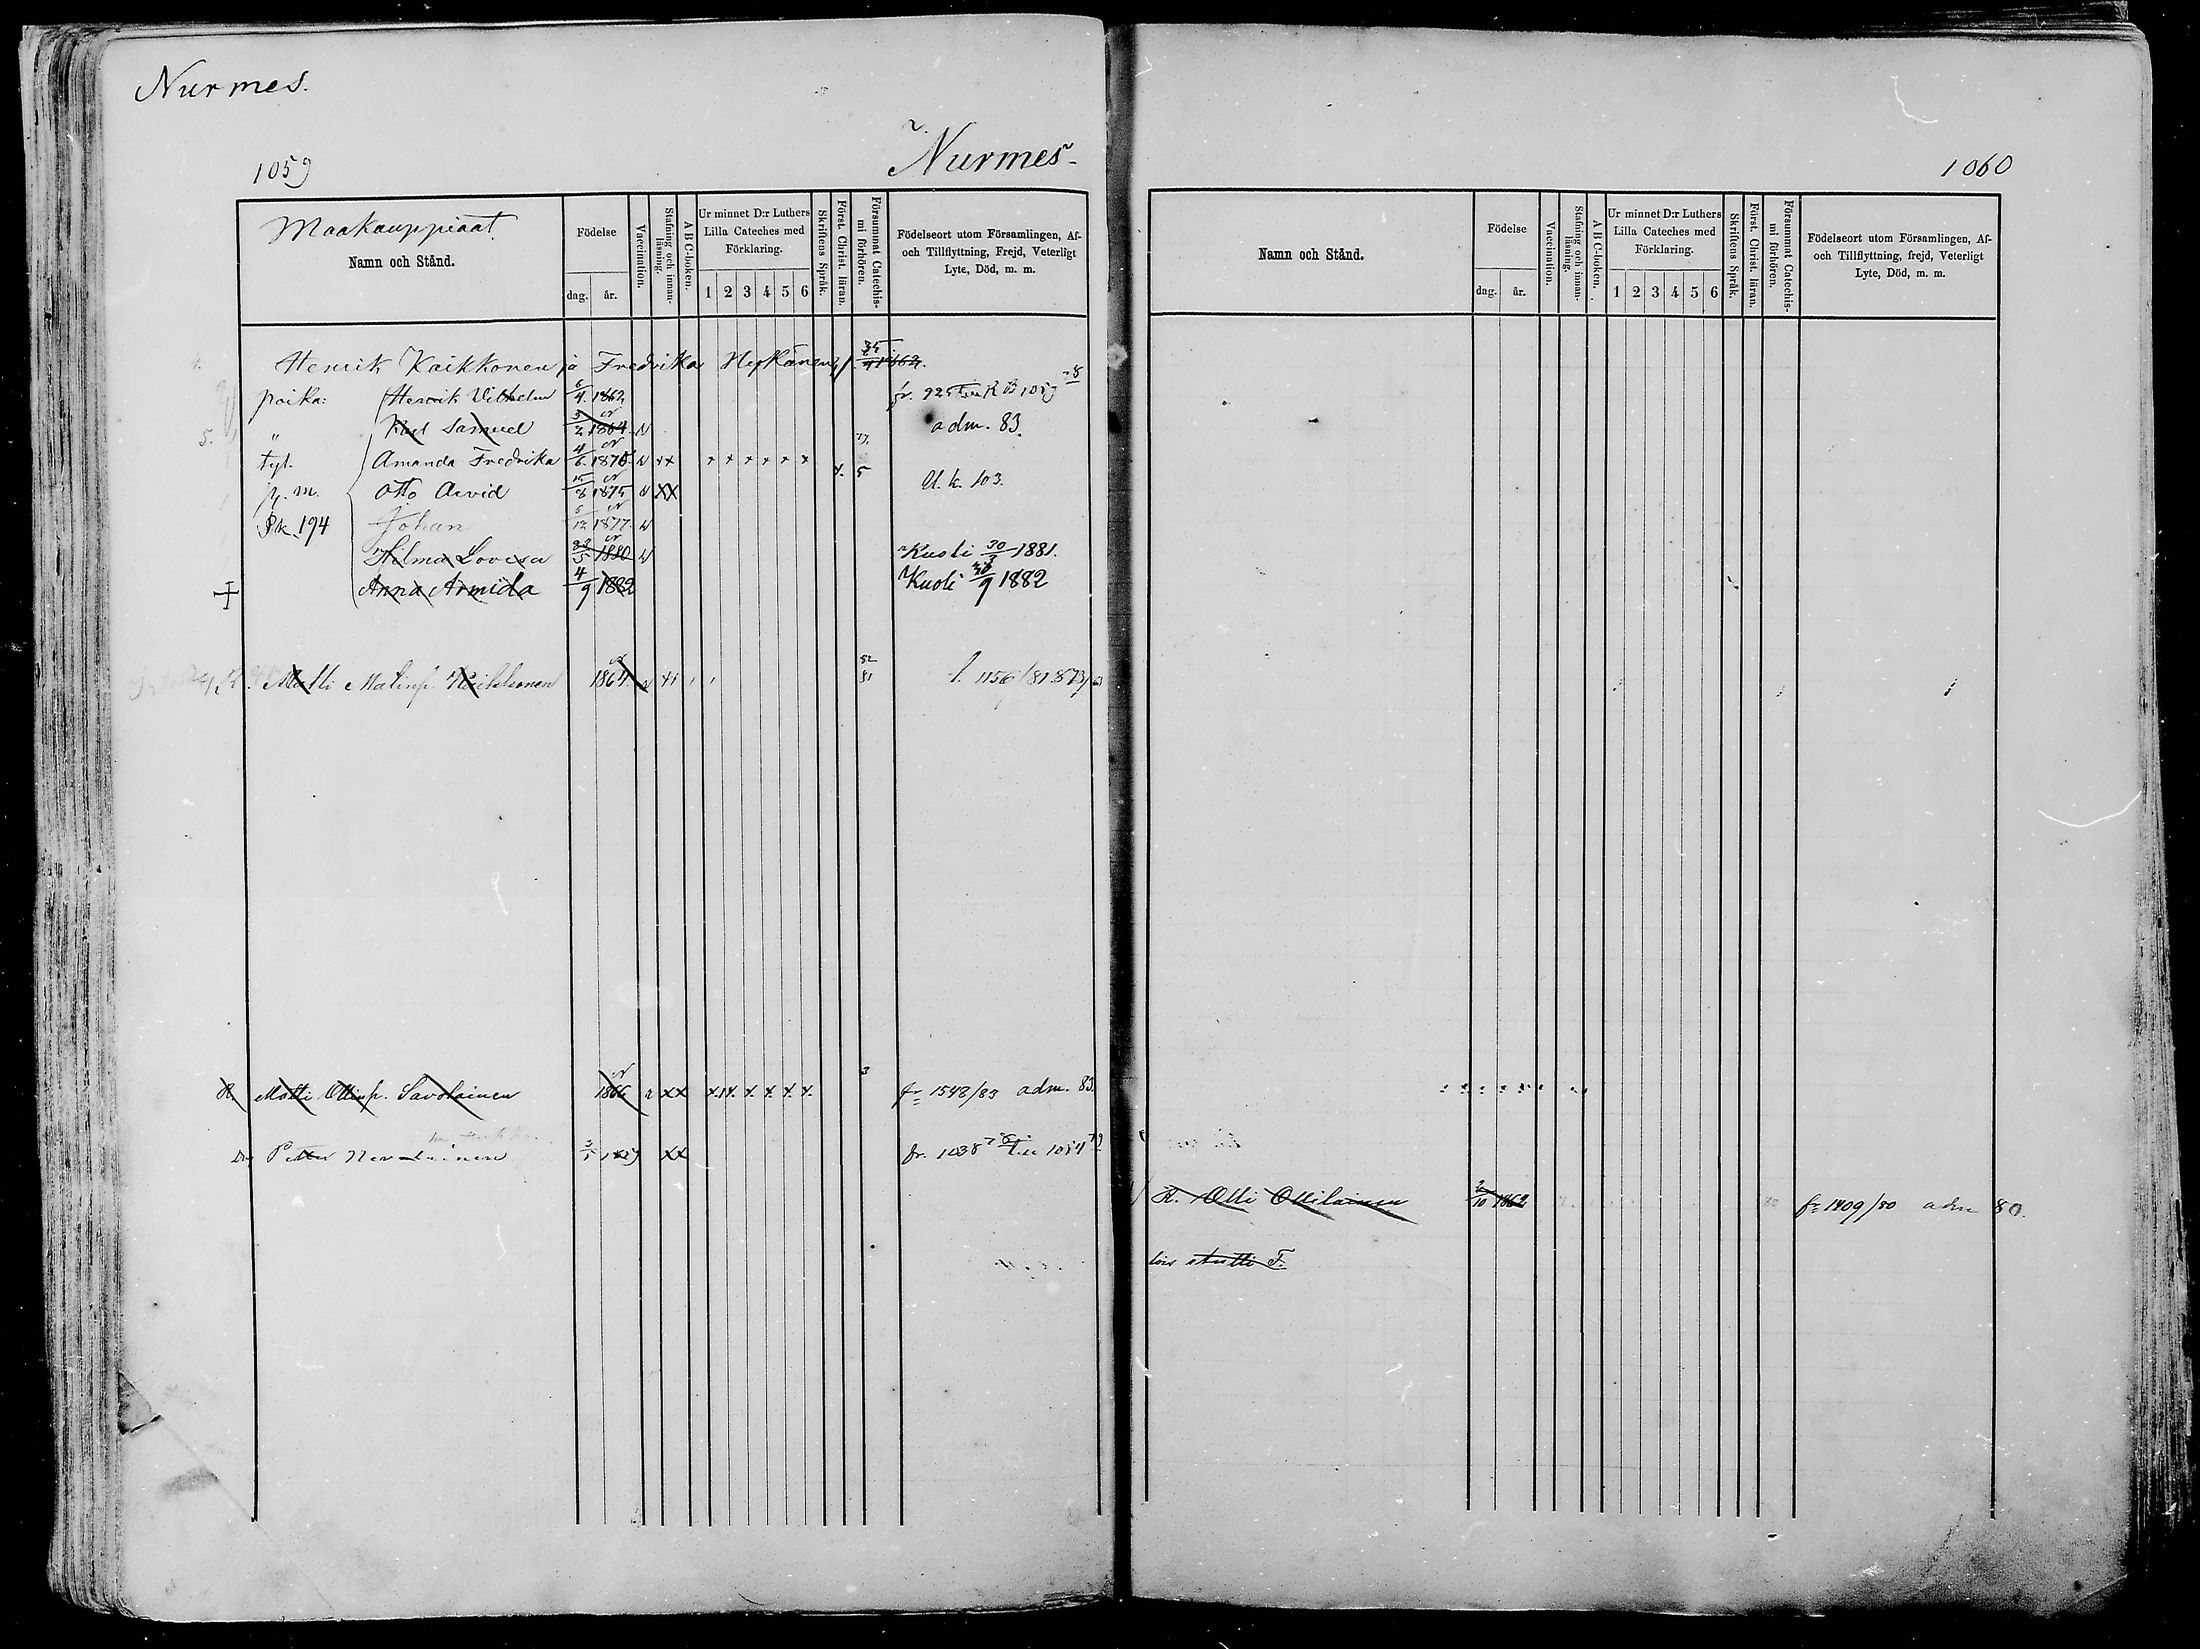 Nurmes.
1059
Nurmes.
Maakauppiaat.
Namn och Stånd.
Födelse
dag.
år.
Vaccination.
Stafning och innan-
läsning.
A B C-boken.
Ur minnet D:r Luthers
Lilla Cateches med
Förklaring.
1 2 3 4 5 6
Skriftens Språk.
Först. Christ. läran.
Försummat Catechis-
mi förhören.
Födelseort utom Församlingen, Af-
och Tillflyttning, Frejd, Veterligt
Lyte, Död, m. m.
Henrik Kaikkonen ja Fredrika
poika: Henrik Vilhelm 6/4 1862
" Karl Samuel 1864 adm. 83.
tyt. Amanda Fredrika 4/6 1870 x x x x x x
p. m. Otto Arvid 15/8 1875 xx Ul. k. 103.
Pk 194 Johan 6/12 1877
Hilma Lovisa 1880 Kuoli 1881.
Anna Armida 4/9 1882 Kuoli 1882
Matti Matinp. Kaikkonen 1864
82
81
R. Matti Ollinp. Savolainen 1866 xx fr 1548/83 adm. 83
Petter xx fr. 1038
1060
Namn och Stånd.
Födelse
dag.
år.
Vaccination.
Stafning och innan-
läsning.
A B C-boken.
Ur minnet D:r Luthers
Lilla Cateches med
Förklaring.
1 2 3 4 5 6
Skriftens Språk.
Först. Christ. läran.
Försummat Catechis-
mi förhören.
Födelseort utom Församlingen, Af-
och Tillflyttning, frejd, Veterligt
Lyte, Död, m. m.
R. Olli Ottilainen 1862 fr 1409/80 adm 80.